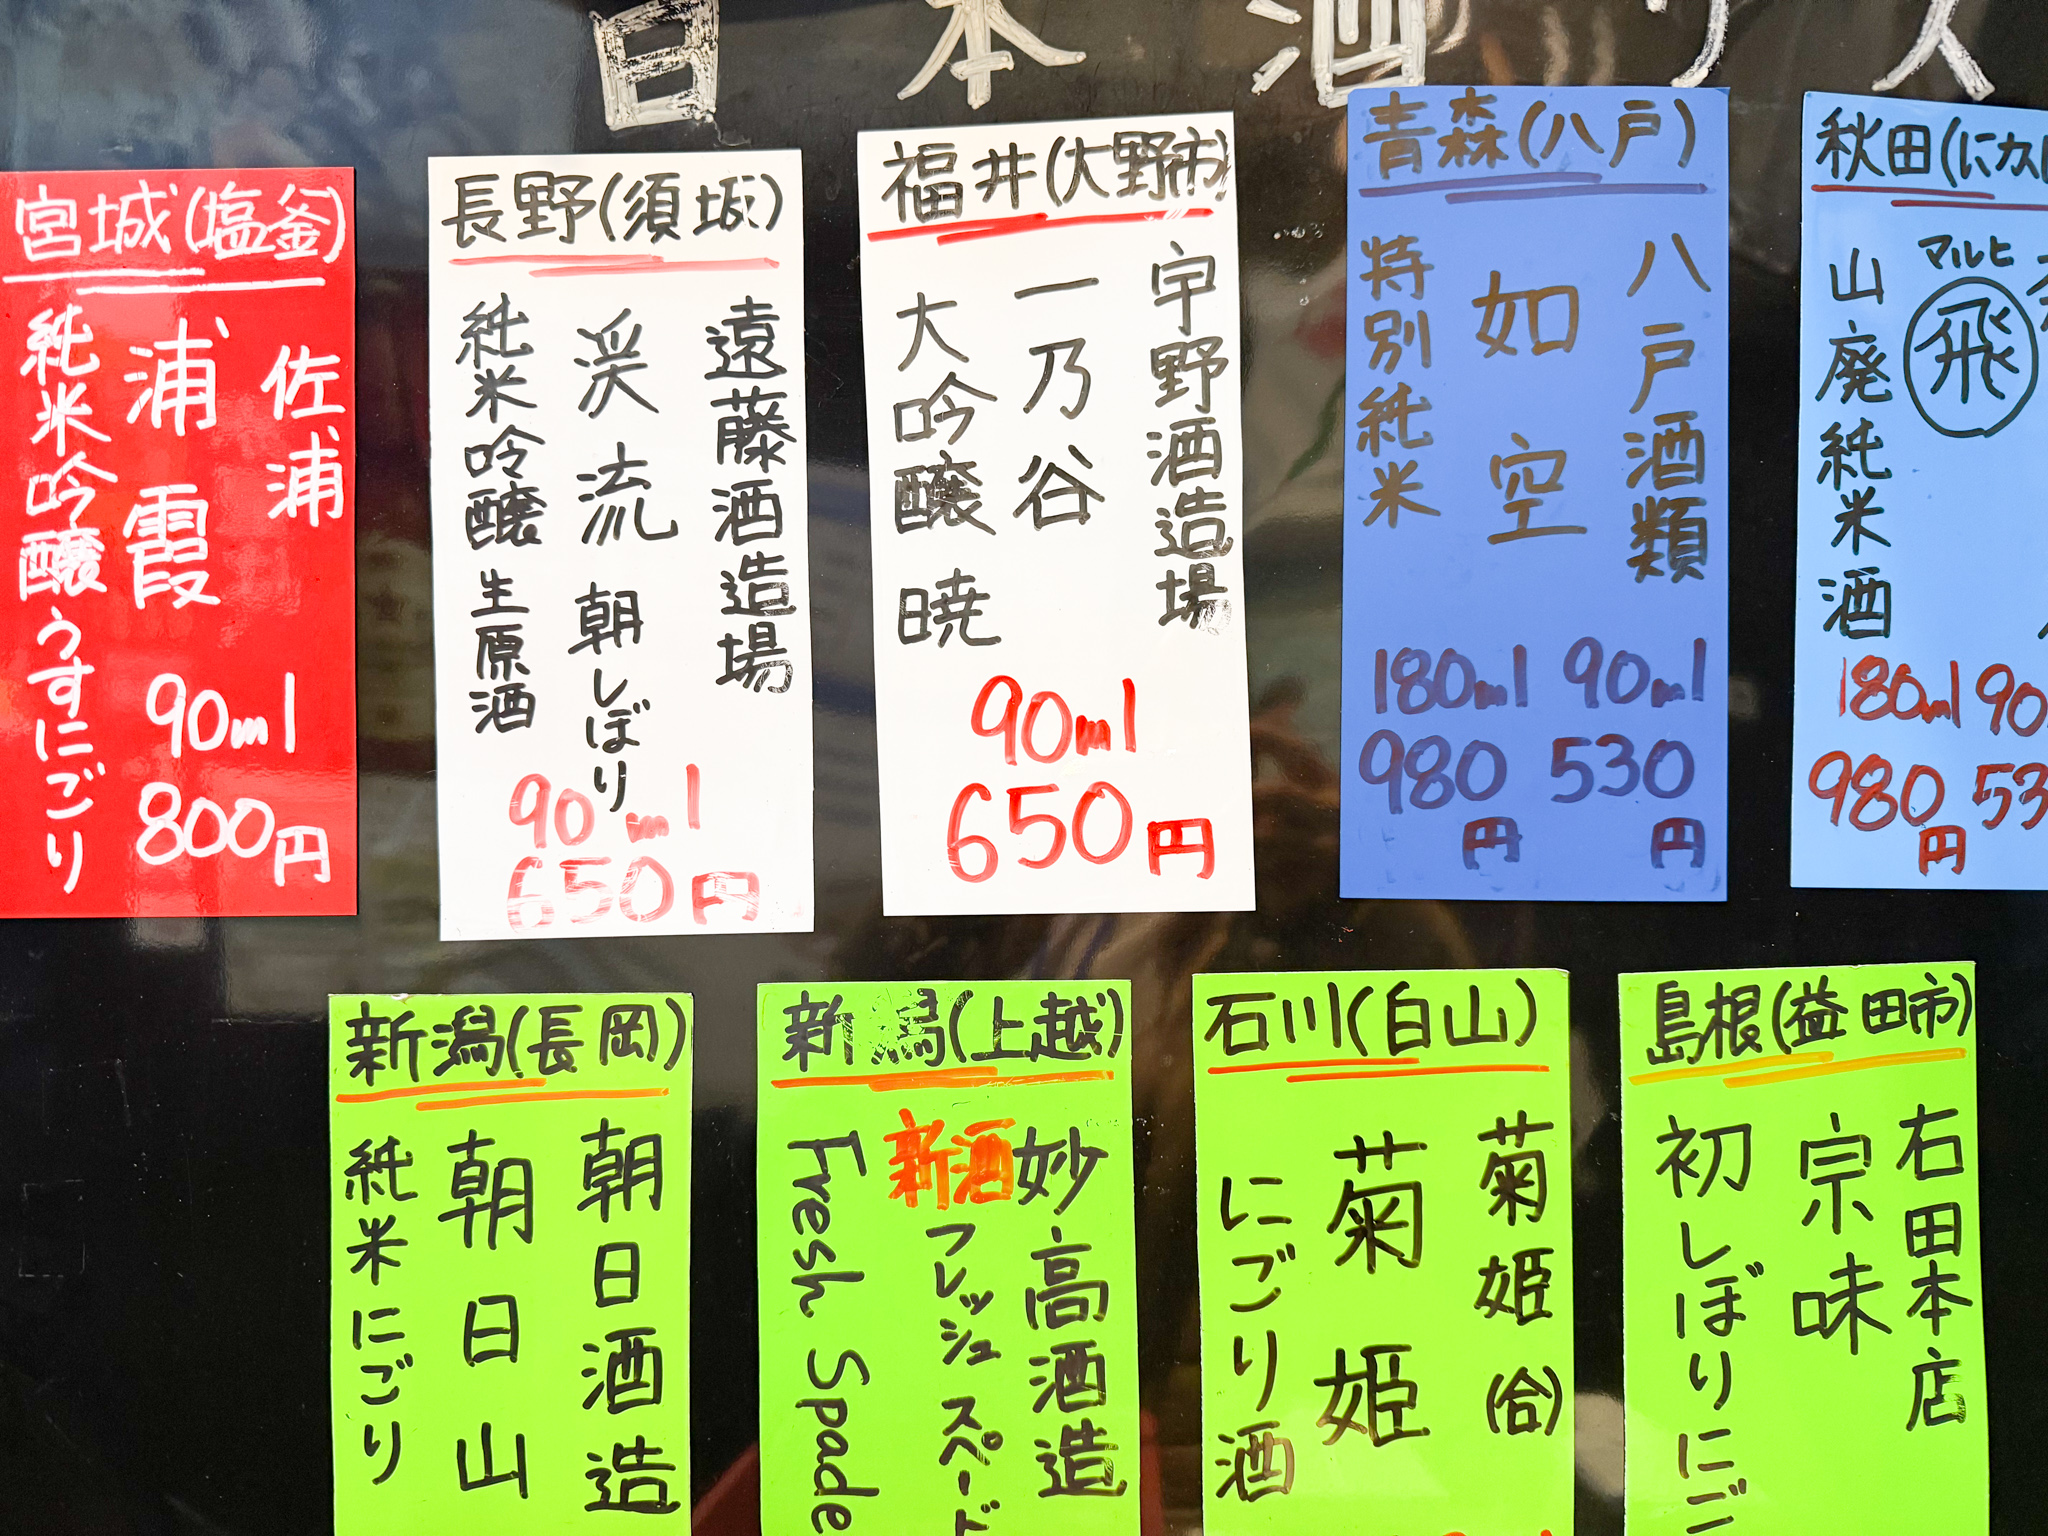 日本酒リス
宮城(塩釜)
佐浦
浦霞
純米吟醸うすにごり
90ml
800円
長野(須坂)
遠藤酒造場
渓流 朝しぼり
純米吟醸 生原酒
90ml
650円
福井(大野市)
宇野酒造場
一乃谷
大吟醸 暁
90ml
650円
青森(八戸)
八戸酒類
如空
特別純米
180ml 90ml
980円 530円
秋田(にかほ
マルヒ
飛
山廃純米酒
180ml 90
980円 53
新潟(長岡)
朝日酒造
朝日山
純米にごり
新潟(上越)
妙高酒造
新酒
フレッシュ スペード
Fresh Spade
石川(白山)
菊姫(合)
菊姫
にごり酒
島根(益田市)
右田本店
宗味
初しぼりにご